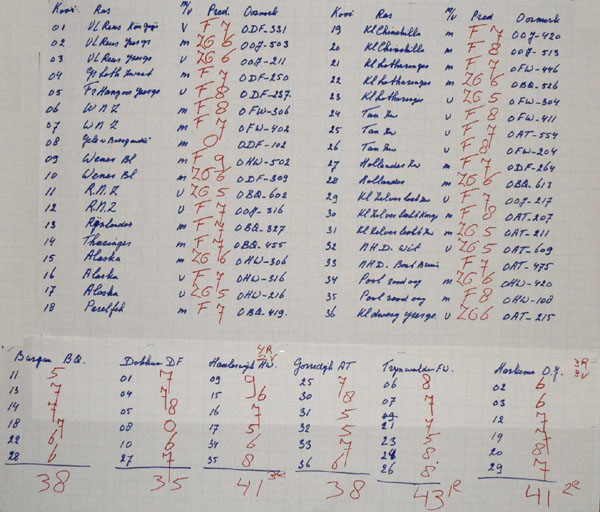 Kooi Ras m/v Pred. Oormerk
01 Vl Reus Kon grijs V F 7 0DF-331
02 Vl Reus Yzergr m ZG 6 00J-503
03 Vl Reus Yzergr v ZG 6 00J-211
04 Gr Loth Zwart m F 7 0DF-250
05 Fr Hangoor Yzergr v F 8 0DF-257
06 W.N.Z m F 8 0FW-306
07 W N Z m F 7 0FW-402
08 Gele v Bourgondië m 0 0DF-102
09 Wener Bl m F 9 0HW-502
10 Wener Bl m ZG 6 0DF-309
11 R.N.Z v ZG 5 0BQ-602
12 R.N.Z v F 7 00J-316
13 Rijnlander m F 7 0BQ-327
14 Thuringer m F 7 0BQ-455
15 Alaska m ZG 6 0HW-306
16 Alaska v F 7 0HW-316
17 Alaska v ZG 5 0HW-216
18 Parelfeh m F 7 0BQ-419.
Kooi Ras m/v Pred Oormerk
19 Kl Chinchilla m F 7 00J-420
20 Kl Chinchilla m F 8 00J-513
21 Kl Lotharinger m F 7 0FW-446
22 Kl Lotharinger m ZG 6 0BQ-526
23 Kl Lotharinger v ZG 5 0FW-304
24 Tan Zw v F 8 0FW-411
25 Tan Zw v F 7 0AT-554
26 Tan Zw v F 8 0FW-204
27 Hollander Zw m F 7 0DF-264
28 Hollander m ZG 6 0BQ-613
29 Kl Zilver v F 7 00J-217
30 Kl Zilver m F 8 0AT-207
31 Kl Zilver m ZG 5 0AT-211
32 N.H.D. Wit v ZG 5 0AT-609
33 N.H.D. v F 7 0AT-475
34 Pool rood oog m ZG 6 0HW-420
35 Pool rood oog m F 8 0HW-108
36 Kl dwerg yzergr. v ZG 6 0AT-215
Burgum BQ.
11 5
13 7
14 7
18 7
22 6
28 6
38
Dokkum DF
01 7
04 7
05 8
08 0
10 6
27 7
35
4R
2V
Haulerwijk HW.
09 9
15 6
16 7
17 5
34 6
35 8
41 3e
Gorredijk AT
25 7
30 8
31 5
32 5
33 7
36 6
38
Trynwalden FW.
06 8
07 7
21 7
23 5
24 8
26 8
43 1e
Harkema O.J.
3R
3V
02 6
03 6
12 7
19 7
20 8
29 7
41 2e